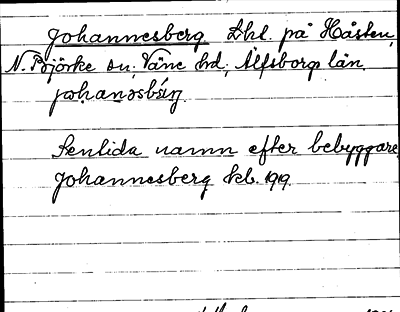 Johannesberg Lht. på Håsten,
N. Björke sn; Väne hd; Älfsborgs län.
Senlida namn efter bebyggare
Johannesberg kb. 199.